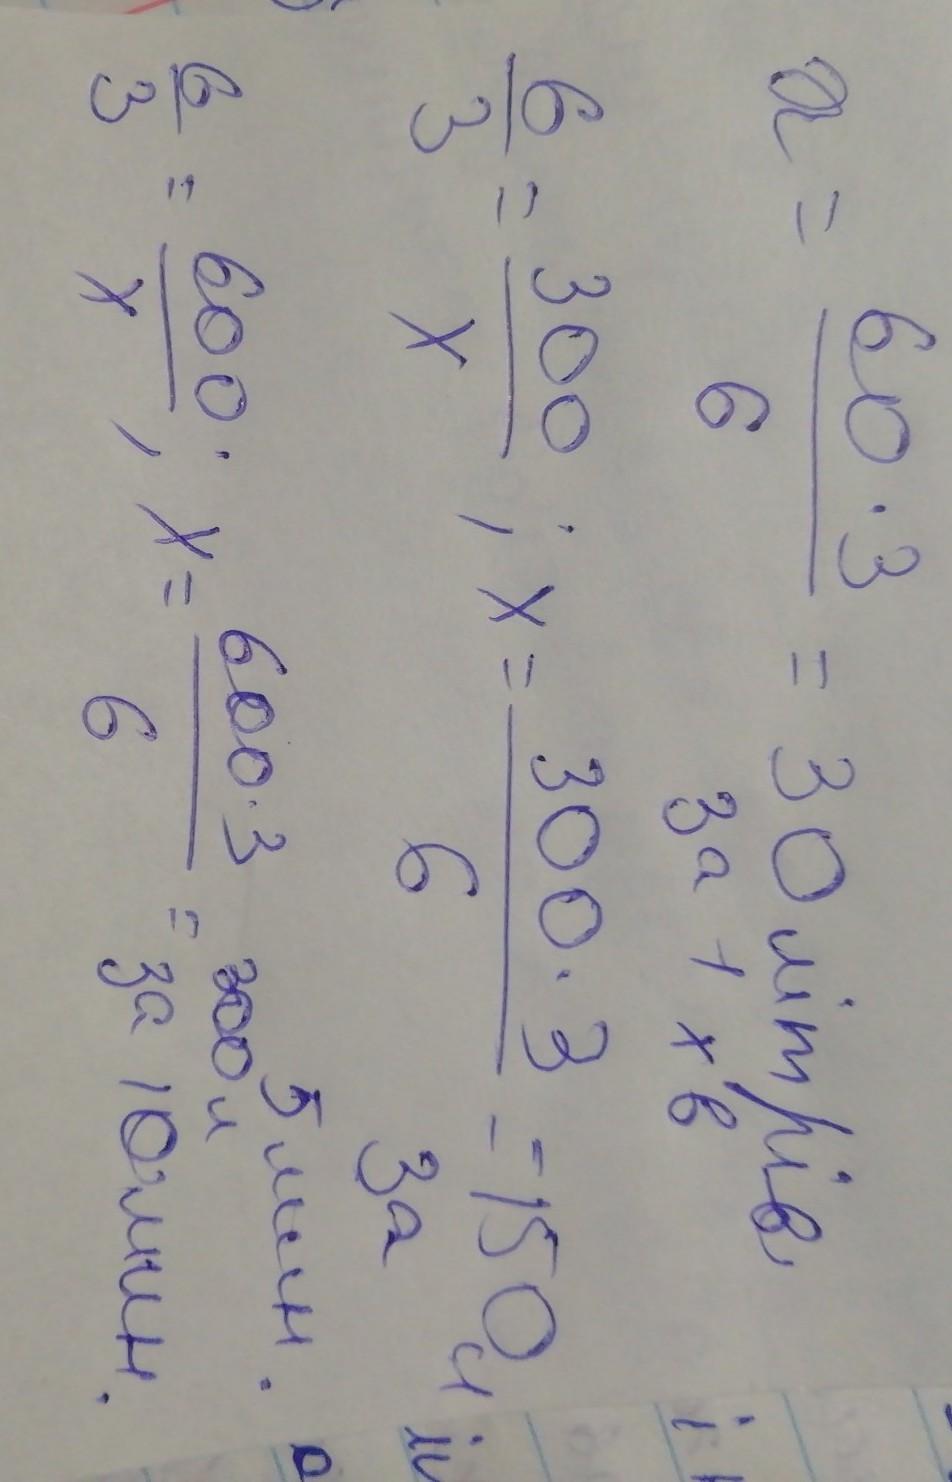 a = 60·3/6 = 30 літрів
за 1 хв
6/3 = 300/x ; x = 300·3/6 = 150 л
за 5 мин.
6/3 = 600/x ; x = 600·3/6 = 300 л
за 10 мин.